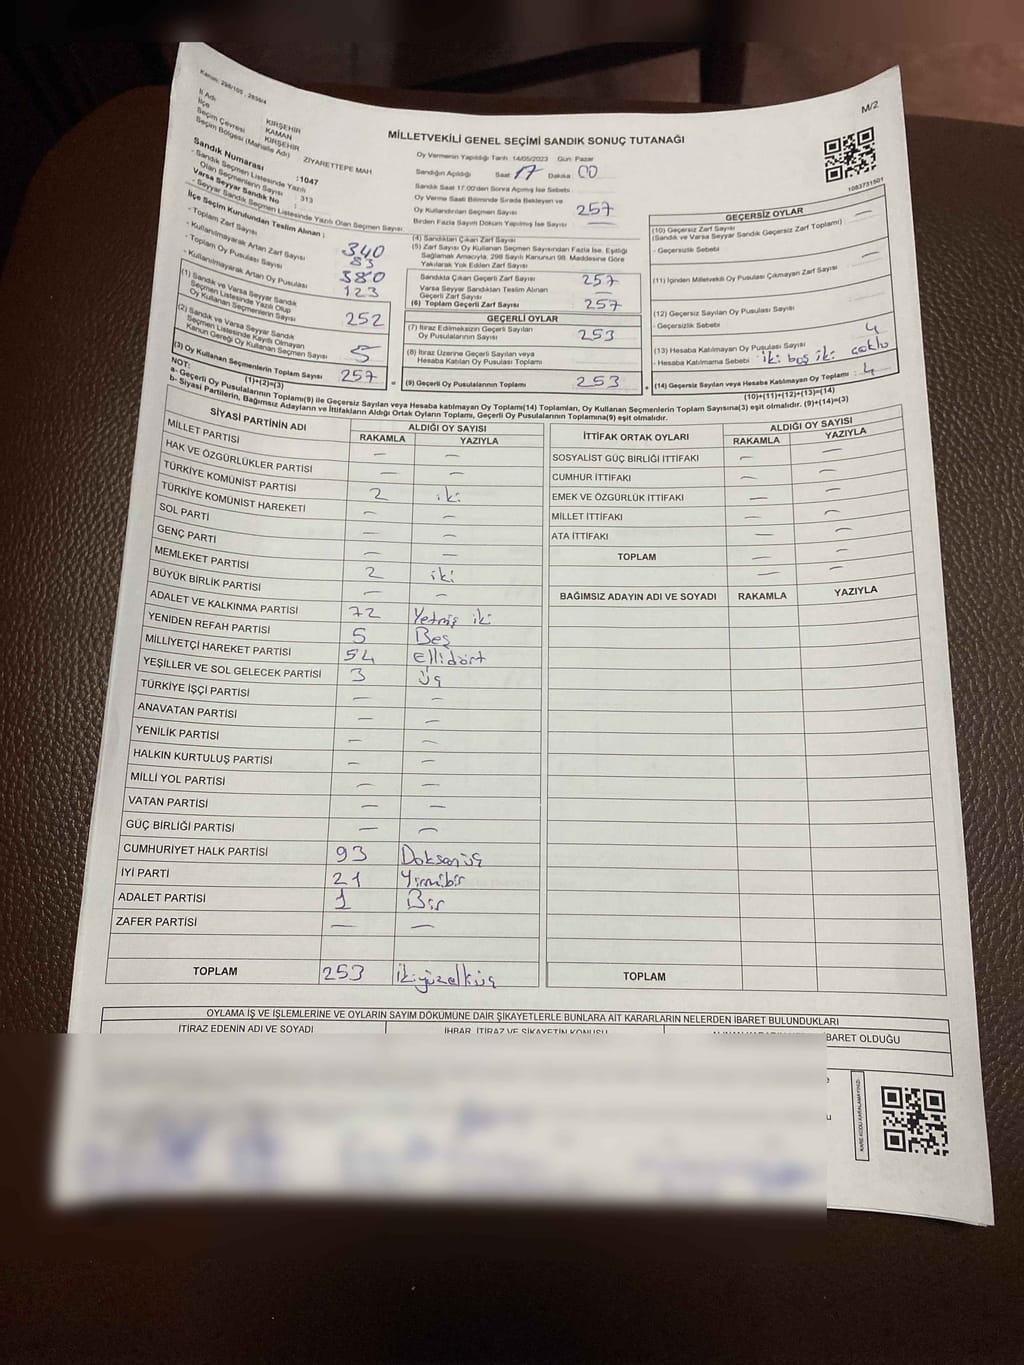 Kanun: 298/105 , 2839/4
M/2
İl Adı KIRŞEHİR
İlçe KAMAN
Seçim Çevresi KIRŞEHİR
Seçim Bölgesi (Mahalle Adı) ZİYARETTEPE MAH.
Sandık Numarası :1047
- Sandık Seçmen Listesinde Yazılı
Olan Seçmenlerin Sayısı : 313
Varsa Seyyar Sandık No :
- Seyyar Sandık Seçmen Listesinde Yazılı Olan Seçmen Sayısı:
MİLLETVEKİLİ GENEL SEÇİMİ SANDIK SONUÇ TUTANAĞI
Oy Vermenin Yapıldığı Tarih: 14/05/2023 Gün: Pazar
Sandığın Açıldığı Saat 17 Dakika 00
Sandık Saat 17.00'den Sonra Açılmış İse Sebebi
Oy Verme Saati Bitiminde Sırada Bekleyen ve
Oy Kullandırılan Seçmen Sayısı 257
Birden Fazla Sayım Döküm Yapılmış İse Sayısı —
1083731501
İlçe Seçim Kurulundan Teslim Alınan :
- Toplam Zarf Sayısı 340
- Kullanılmayarak Artan Zarf Sayısı 83
- Toplam Oy Pusulası Sayısı 380
- Kullanılmayarak Artan Oy Pusulası 123
(1) Sandık ve Varsa Seyyar Sandık
Seçmen Listesinde Yazılı Olup
Oy Kullanan Seçmenlerin Sayısı 252
(2) Sandık ve Varsa Seyyar Sandık
Seçmen Listesinde Kayıtlı Olmayan
Kanun Gereği Oy Kullanan Seçmen Sayısı 5
(3) Oy Kullanan Seçmenlerin Toplam Sayısı 257
(1)+(2)=(3)
(4) Sandıktan Çıkan Zarf Sayısı
(5) Zarf Sayısı Oy Kullanan Seçmen Sayısından Fazla İse, Eşitliği
Sağlamak Amacıyla, 298 Sayılı Kanunun 98. Maddesine Göre
Yakılarak Yok Edilen Zarf Sayısı
Sandıkta Çıkan Geçerli Zarf Sayısı 257
Varsa Seyyar Sandıktan Teslim Alınan
Geçerli Zarf Sayısı —
(6) Toplam Geçerli Zarf Sayısı 257
GEÇERLİ OYLAR
(7) İtiraz Edilmeksizin Geçerli Sayılan
Oy Pusulalarının Sayısı 253
(8) İtiraz Üzerine Geçerli Sayılan veya
Hesaba Katılan Oy Pusulası Toplamı
= (9) Geçerli Oy Pusulalarının Toplamı 253
GEÇERSİZ OYLAR
(10) Geçersiz Zarf Sayısı —
(Sandık ve Varsa Seyyar Sandık Geçersiz Zarf Toplamı)
- Geçersizlik Sebebi
(11) İçinden Milletvekili Oy Pusulası Çıkmayan Zarf Sayısı —
(12) Geçersiz Sayılan Oy Pusulası Sayısı
- Geçersizlik Sebebi
(13) Hesaba Katılmayan Oy Pusulası Sayısı 4
- Hesaba Katılmama Sebebi iki boş iki çoklu
+ (14) Geçersiz Sayılan veya Hesaba Katılmayan Oy Toplamı : 4
(10)+(11)+(12)+(13)=(14)
NOT:
a- Geçerli Oy Pusulalarının Toplamı(9) ile Geçersiz Sayılan veya Hesaba katılmayan Oy Toplamı(14) Toplamları, Oy Kullanan Seçmenlerin Toplam Sayısına(3) eşit olmalıdır. (9)+(14)=(3)
b- Siyasi Partilerin, Bağımsız Adayların ve İttifakların Aldığı Ortak Oyların Toplamı, Geçerli Oy Pusulalarının Toplamına(9) eşit olmalıdır.
SİYASİ PARTİNİN ADI ALDIĞI OY SAYISI
RAKAMLA YAZIYLA
MİLLET PARTİSİ — —
HAK VE ÖZGÜRLÜKLER PARTİSİ — —
TÜRKİYE KOMÜNİST PARTİSİ 2 iki
TÜRKİYE KOMÜNİST HAREKETİ — —
SOL PARTİ — —
GENÇ PARTİ — —
MEMLEKET PARTİSİ 2 iki
BÜYÜK BİRLİK PARTİSİ — —
ADALET VE KALKINMA PARTİSİ 72 Yetmiş iki
YENİDEN REFAH PARTİSİ 5 Beş
MİLLİYETÇİ HAREKET PARTİSİ 54 ellidört
YEŞİLLER VE SOL GELECEK PARTİSİ 3 üç
TÜRKİYE İŞÇİ PARTİSİ — —
ANAVATAN PARTİSİ — —
YENİLİK PARTİSİ — —
HALKIN KURTULUŞ PARTİSİ — —
MİLLİ YOL PARTİSİ — —
VATAN PARTİSİ — —
GÜÇ BİRLİĞİ PARTİSİ — —
CUMHURİYET HALK PARTİSİ 93 Doksanüç
İYİ PARTİ 21 Yirmibir
ADALET PARTİSİ 1 Bir
ZAFER PARTİSİ — —
TOPLAM 253 ikiyüzelliüç
İTTİFAK ORTAK OYLARI ALDIĞI OY SAYISI
RAKAMLA YAZIYLA
SOSYALİST GÜÇ BİRLİĞİ İTTİFAKI — —
CUMHUR İTTİFAKI — —
EMEK VE ÖZGÜRLÜK İTTİFAKI — —
MİLLET İTTİFAKI — —
ATA İTTİFAKI — —
TOPLAM — —
— —
BAĞIMSIZ ADAYIN ADI VE SOYADI RAKAMLA YAZIYLA
TOPLAM
OYLAMA İŞ VE İŞLEMLERİNE VE OYLARIN SAYIM DÖKÜMÜNE DAİR ŞİKAYETLERLE BUNLARA AİT KARARLARIN NELERDEN İBARET BULUNDUKLARI
İTİRAZ EDENİN ADI VE SOYADI İHBAR, İTİRAZ VE ŞİKAYETİN KONUSU İBARET OLDUĞU
KARE KODU KARALAMAYINIZ!